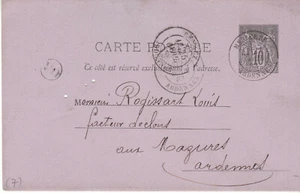 CARTE POSTALE
Ce côté est réservé exclusivement à l'adresse.
10
Monsieur Rogissart Louis
facteur
aux Mazures
ardennes
(7)